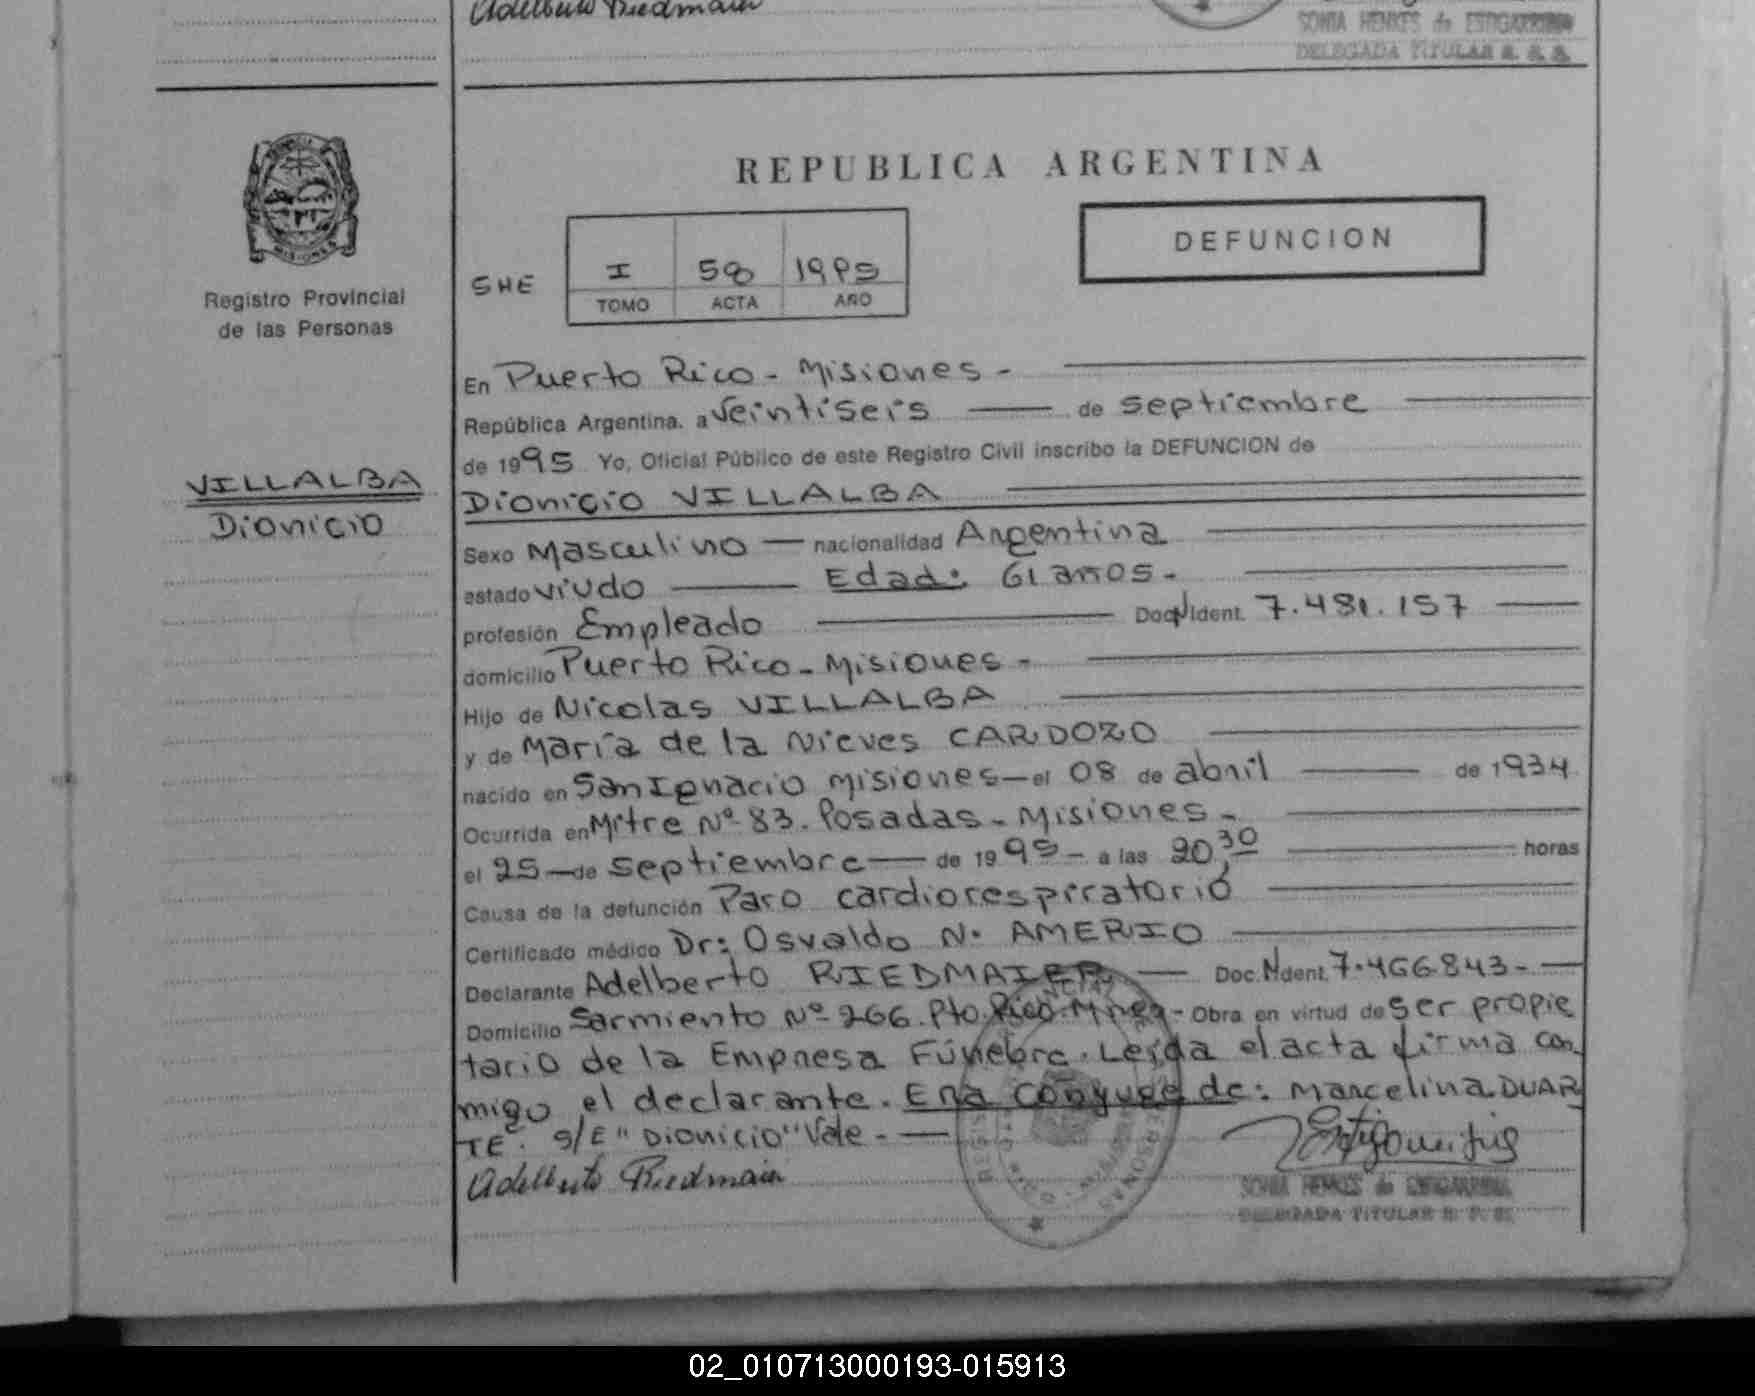 Adelberto Riedmaier
SONIA HENKES de ESTIGARRIBIA
DELEGADA TITULAR
REPUBLICA ARGENTINA
DEFUNCION
MISIONES
SHE I 58 1995
TOMO ACTA AÑO
Registro Provincial
de las Personas
VILLALBA
Dionicio
En Puerto Rico - Misiones -
República Argentina. a veintiseis de septiembre
de 1995 Yo, Oficial Público de este Registro Civil inscribo la DEFUNCION de
Dionicio VILLALBA
Sexo Masculino — nacionalidad Argentina
estado viudo — Edad: 61 años -
profesión Empleado — Doc. Ident. 7.481.157
domicilio Puerto Rico - Misiones -
Hijo de Nicolas VILLALBA
y de María de la Nieves CARDOZO
nacido en San Ignacio Misiones — el 08 de abril — de 1934
Ocurrida en Mitre Nº 83. Posadas - Misiones -
el 25 — de septiembre — de 1995 - a las 20,30 horas
Causa de la defunción Paro cardiorespiratorió
Certificado médico Dr: Osvaldo N. AMERIO
Declarante Adelberto RIEDMAIER — Doc. Ident. 7.466.843 - —
Domicilio Sarmiento Nº 266. Pto. Rico. Mnes - Obra en virtud de ser propie
tario de la Empresa Fúnebre. Leída el acta firma con
migo el declarante. Era conyuge de: Marcelina DUAR
TE. S/E "Dionicio" Vale. —
Adelberto Riedmaier
SONIA HENKES de ESTIGARRIBIA
DELEGADA TITULAR
02_010713000193-015913